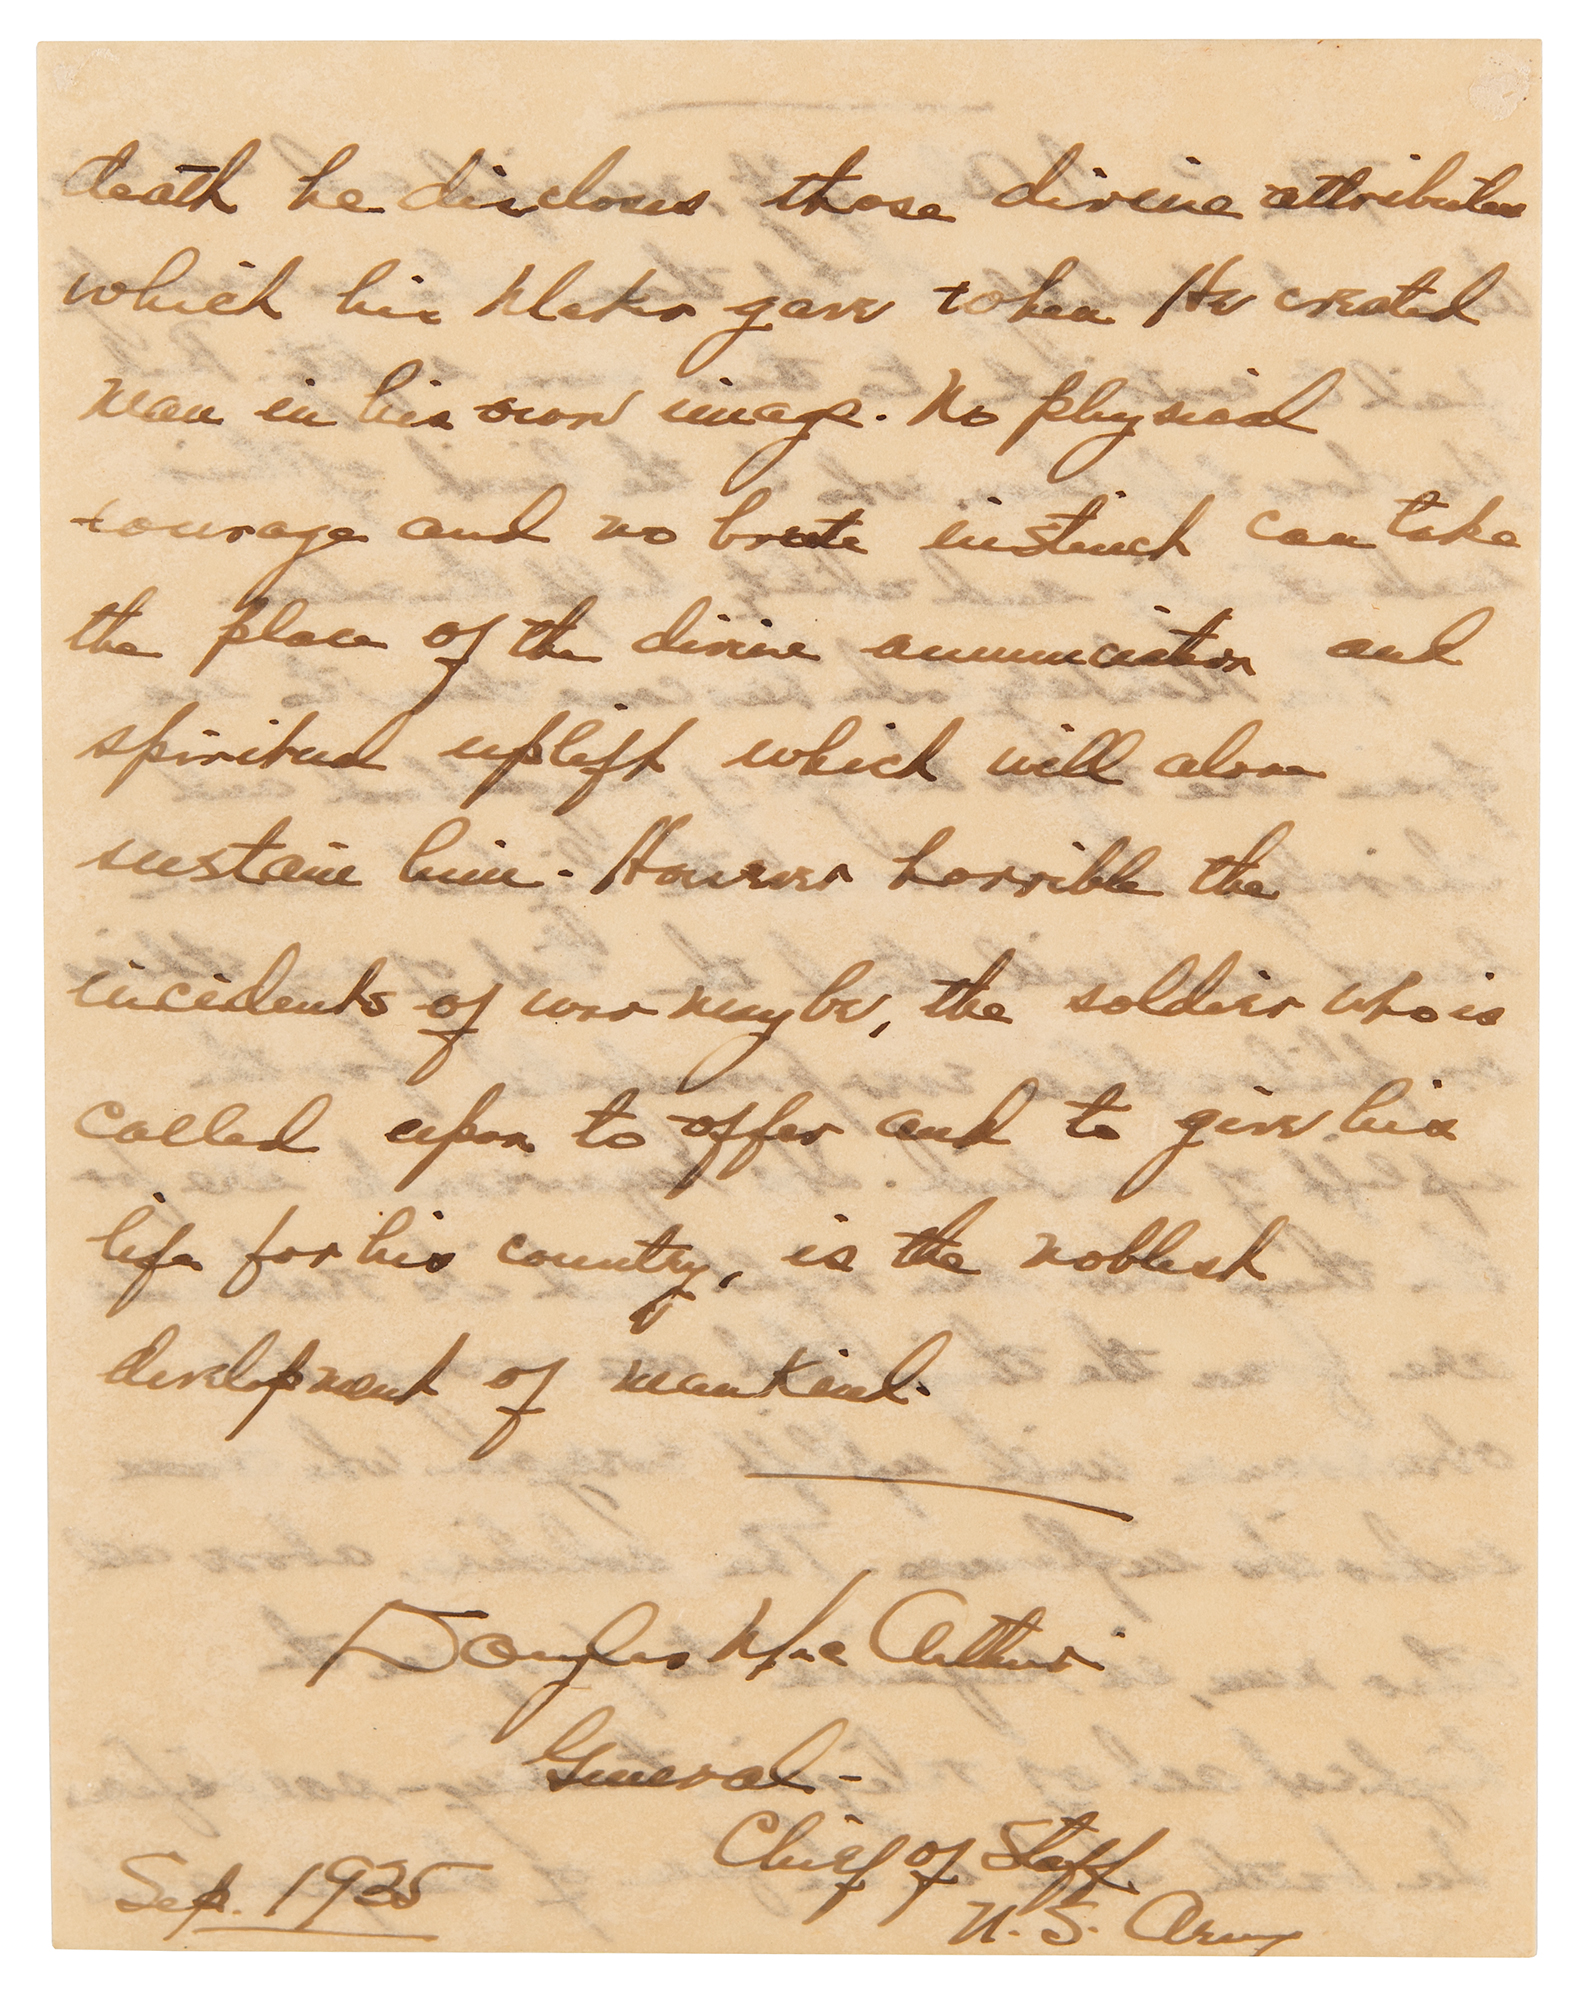 death he discloses those divine attributes
which his Maker gave when He created
man in his own image. No physical
courage and no brute instinct can take
the place of the divine annunciation and
spiritual uplift which will alone
sustain him. However horrible the
incidents of war may be, the soldier who is
called upon to offer and to give his
life for his country, is the noblest
development of mankind.
Douglas MacArthur
General -
Chief of Staff
Sep. 1935
U.S. Army